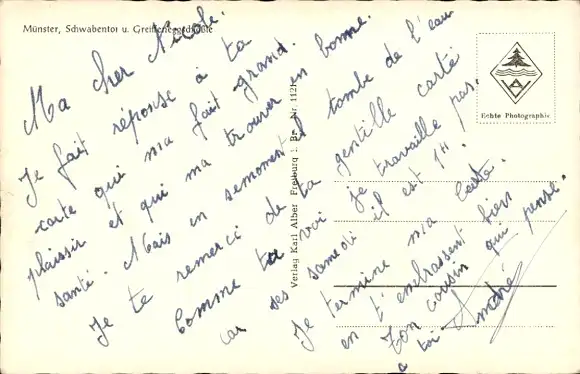 Münster, Schwabentor u. Greiffeneggschlößle
Ma cher Nicole.
Je fait réponse à ta
carte qui m'a fait grand.
plaissir et qui ma trouver en bonne.
santé. Mais en semoment il tombe de l'eau
Je te remerci de ta gentille carte
Comme tu voi je travaille pas.
car ses samedi il est 1H.
Je termine ma lettre.
en t'embrassent bien
Ton cousin qui pense.
a toi André
Verlag Karl Alber Freiburg i. Br. Nr. 112
Echte Photographie